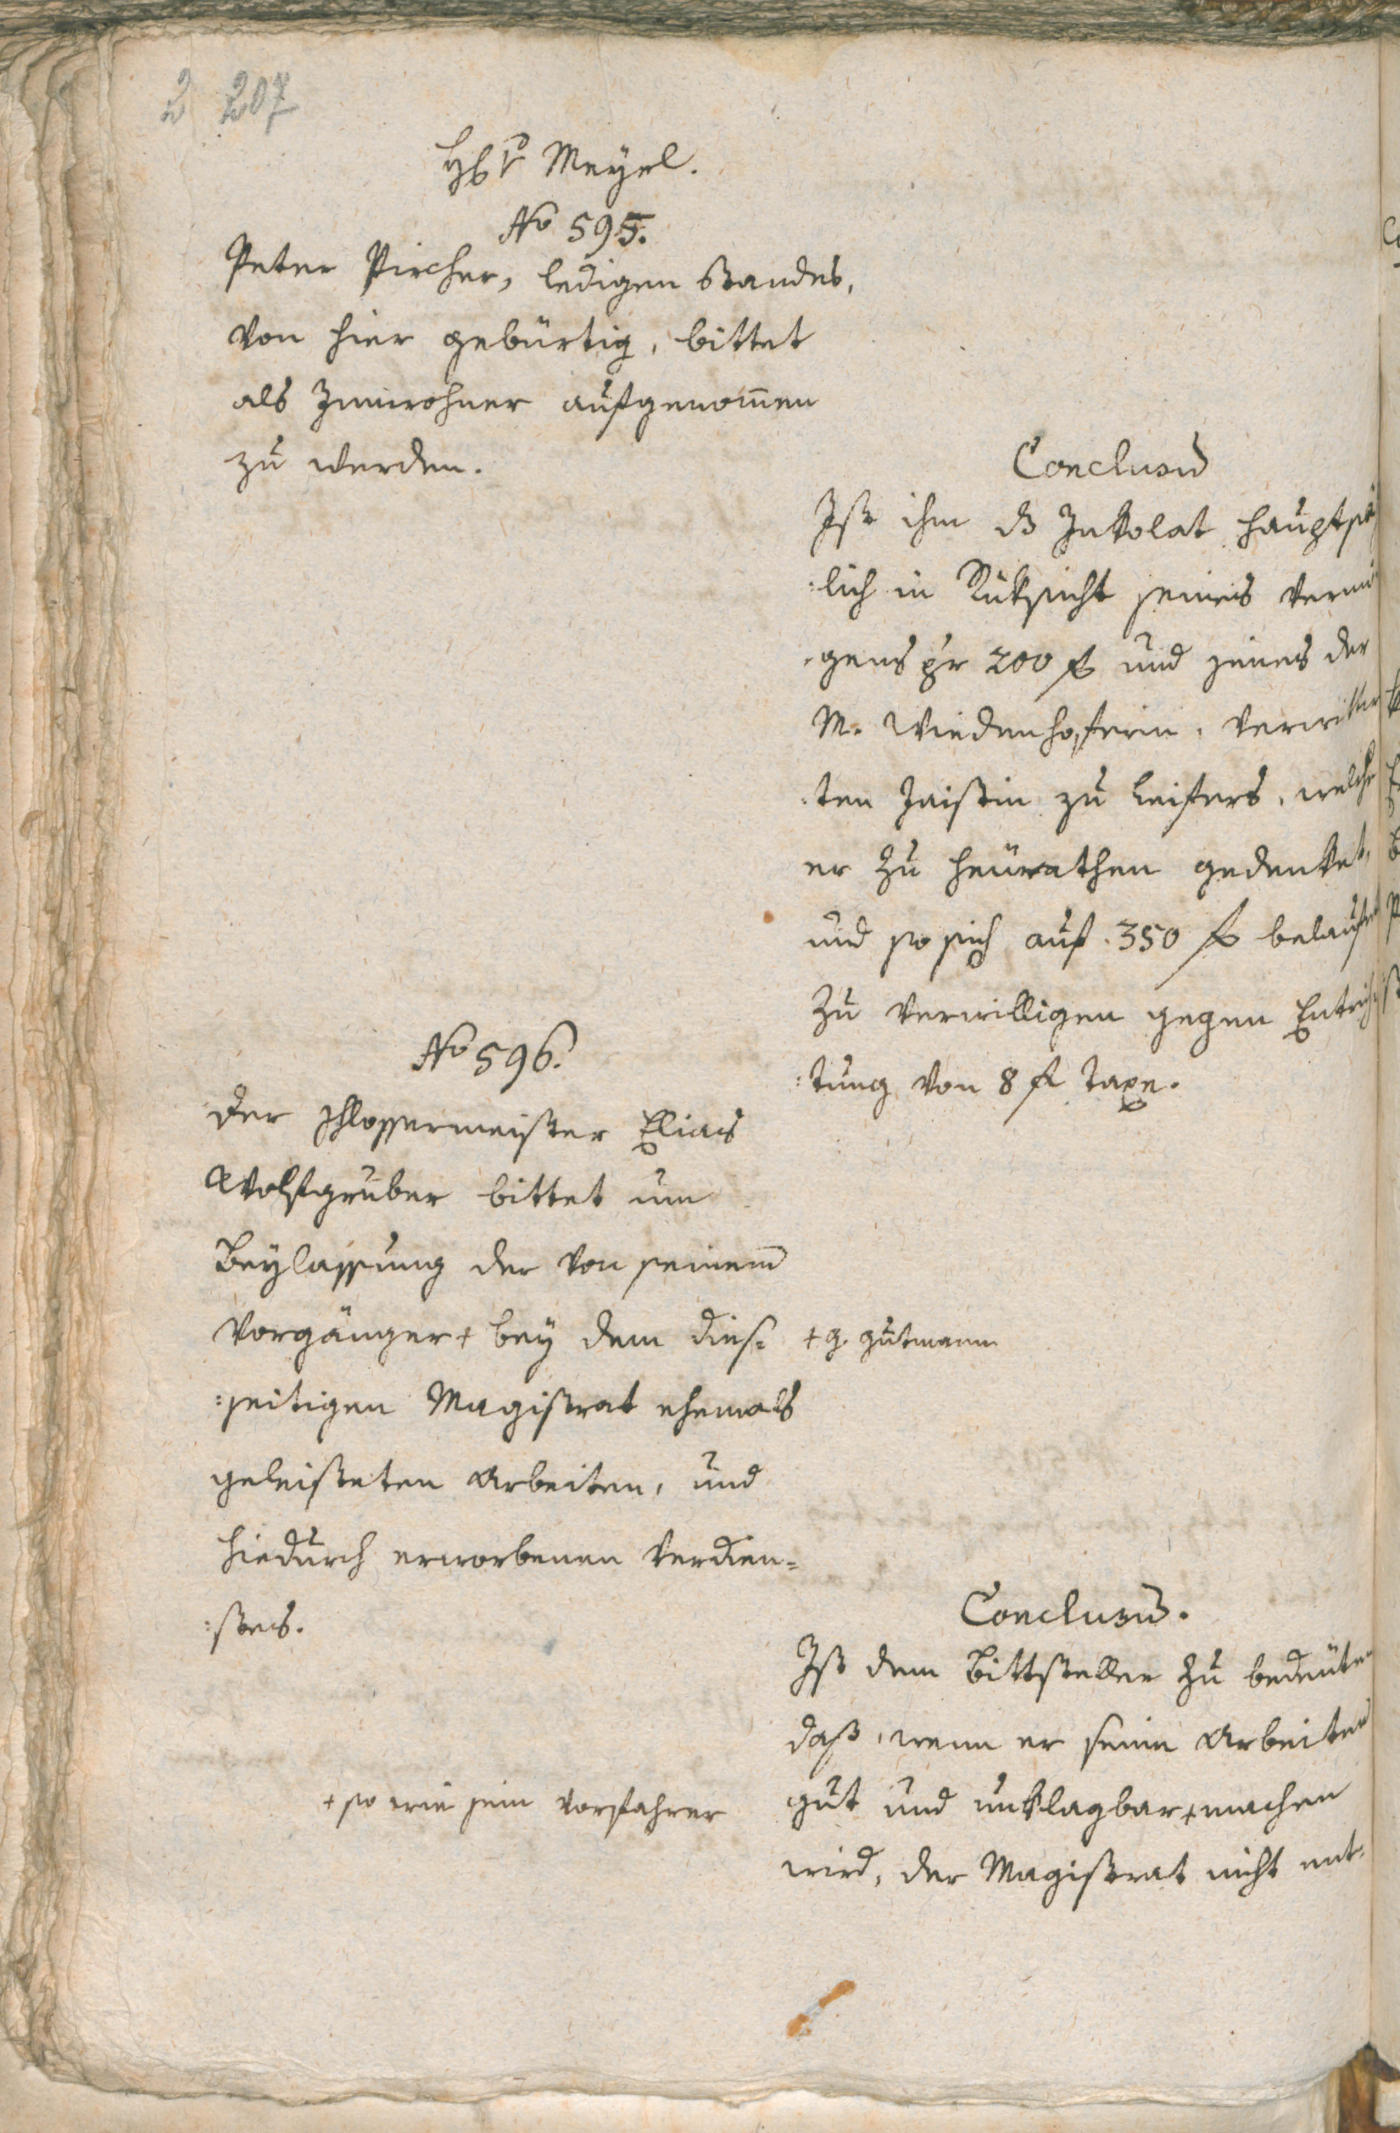 2 207
Meyel.
No 595.
Peter Pircher, ledigen Standes,
von hier gebürtig, bittet
als Innwohner aufgenom̄en
zu werden.
Conclusum
Ist ihm das Inkolat hauptsä
:lich in Rüksicht seines Vermö
:gens pr 200 f und jenes der
M. Wiedenhoferin, verwittw
:ten Zaissin zu Leifers, welche
er zu heürathen gedenket,
und so sich auf 350 f belaufet
zu verwilligen gegen Entrich
:tung von 8 f Taxe.
No 596.
Der Schlossermeister Elias
Wolfgruber bittet um
Beylassung der von seinem
Vorgänger + bey dem dies=
:seitigen Magistrat ehemals
geleisteten Arbeiten, und
hiedurch erworbenen Verdien=
:stes.
+ G. Gutmann
Conclusum.
Ist dem Bittsteller zu bedeüten
daß, wenn er seine Arbeiten
gut und unklagbar + machen
wird, der Magistrat nicht ent=
+ so wie sein Vorfahrer